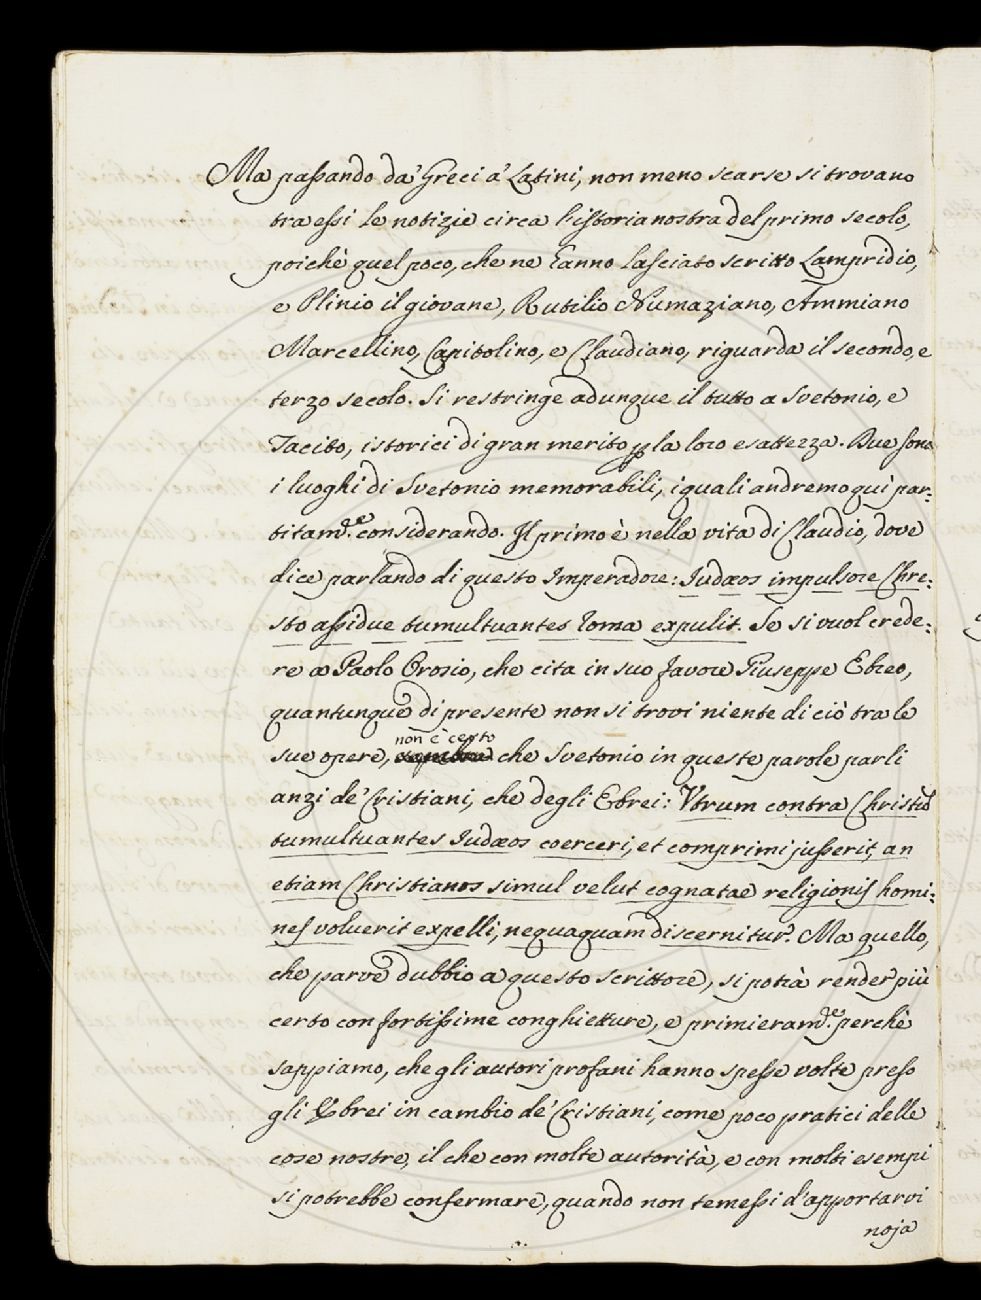 Ma passando da' Greci a' Latini, non meno scarse si trovano
tra essi le notizie circa l'istoria nostra del primo secolo,
poichè quel poco, che ne hanno lasciato scritto Lampridio,
e Plinio il giovane, Rutilio Numaziano, Ammiano
Marcellino, Capitolino, e Claudiano, riguarda il secondo, e
terzo secolo. Si restringe adunque il tutto a Svetonio, e
Tacito, istorici di gran merito p la loro esattezza. Due sono
i luoghi di Svetonio memorabili, i quali andremo quì par=
titam.te considerando. Il primo è nella vita di Claudio, dove
dice parlando di questo Imperadore: Iudæos impulsore Chre=
sto assidue tumultuantes Roma expulit. Se si vuol crede=
re a Paolo Orosio, che cita in suo favore Giuseppe Ebreo,
quantunque di presente non si trovi niente di ciò tra le
sue opere, non è certo che Svetonio in queste parole parli
anzi de' Cristiani, che degli Ebrei: Utrum contra Christũ
tumultuantes Iudæos coerceri, et comprimi jusserit, an
etiam Christianos simul velut cognatae religionis homi=
nes voluerit expelli, nequaquam discernitur. Ma quello,
che parve dubbio a questo scrittore, si potrà render più
certo con fortissime conghietture, e primieram.te perchè
sappiamo, che gli autori profani hanno spesse volte preso
gli Ebrei in cambio de' Cristiani, come poco pratici delle
cose nostre, il che con molte autorità, e con molti esempi
si potrebbe confermare, quando non temessi d'apportarvi
noja